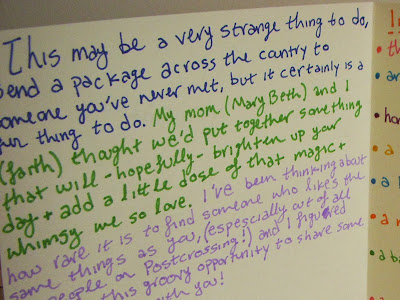 This may be a very strange thing to do,
send a package across the country to
someone you've never met, but it certainly is a
fun thing to do. My mom (Mary Beth) and I
(faith) thought we'd put together something
that will - hopefully - brighten up your
day + add a little dose of that magic +
whimsy we so love. I've been thinking about
how rare it is to find someone who likes the
same things as you, (especially out of all
people on Postcrossing!) and I figured
this groovy opportunity to share some
with you!